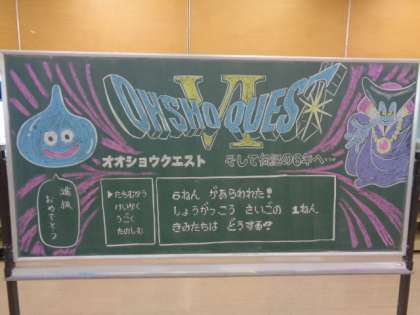 OHSHO QUEST
VI
オオショウクエスト
そして伝説の6年へ…
進級
おめでとう
▶たちむかう
けいかく
うごく
たのしむ
6ねん があらわれた!
しょうがっこう さいごの 1ねん
きみたちは どうする?